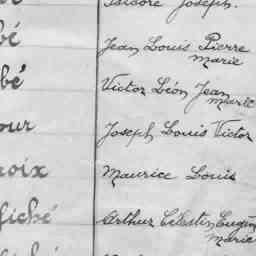 Isidore Joseph.
bé Jean Louis Pierre
Marie
bé Victor Léon Jean
Marie
our Joseph Louis Victor
roix Maurice Louis
fiché Arthur Célestin Eugèn
Marie